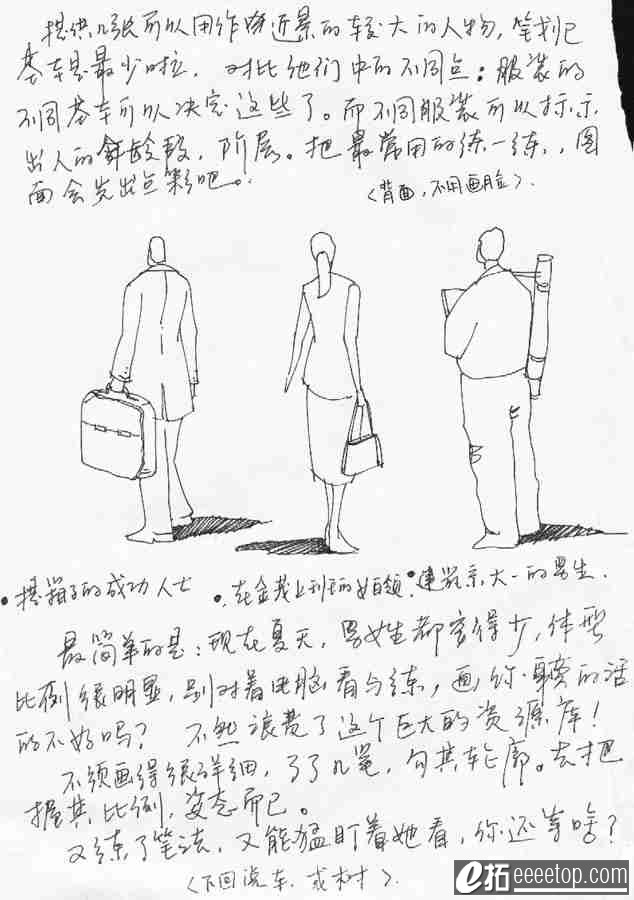 提供几张可以用作近景的较大的人物，笔划已
基本是最少啦. 对比他们中的不同点：服装的
不同基本可以决定这些了。而不同服装可以标示
出人的年龄段，阶层。把最常用的练一练，图
面会出点彩吧。
〈背面，不用画脸〉.
• 提箱子的成功人士
• 在金茂上班的女白领
• 建筑系大一的男生.
最简单的是：现在夏天，男女生都穿得少，体型
比例很明显，别对着电脑看与练，画你的话
的不好吗？ 不然浪费了这个巨大的资源库！
不须画得很详细，了了几笔，勾其轮廓。去把
握其比例，姿态而已。
又练了笔法，又能猛盯着她看，你还等啥？
〈下回说车，或树〉.
e拓 eeeetop.com